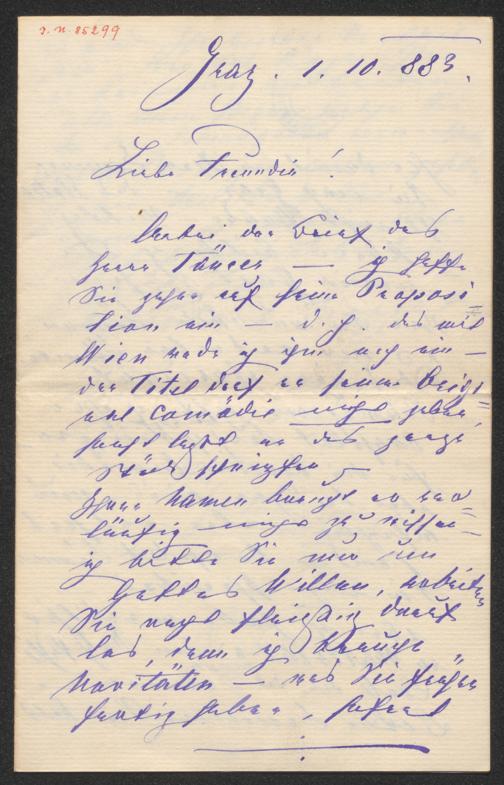 J.N. 85299
Graz. 1. 10. 883.
Liebe Freundin!
Anbei der Brief des
Herrn Tänzer — ich hoffe
Sie gehen auf seine Proposi=
tion ein — d. h. das mit
Wien rede ich ihm noch ein —
den Titel darf er seiner Origi=
nal Comödie nicht geben,
sonst legt er das ganze
Stück
Ihren Namen braucht er vor=
läufig nicht zu wissen —
ich bitte Sie nur um
Gottes Willen, arbeiten
Sie recht fleißig drauf
los, denn ich brauche
Novitäten — was Sie früher
fertig haben, sofort